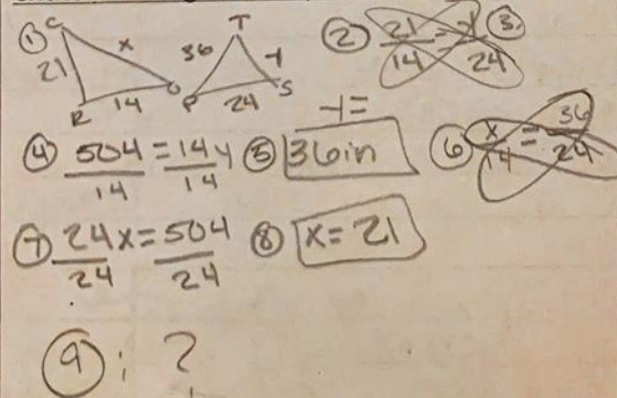 ① C x 21 R 14 O 36 T y P 24 S ② 21/14 = y/24 ③
y =
④ 504/14 = 14y/14 ⑤ 36in ⑥ x/14 = 36/24
⑦ 24x/24 = 504/24 ⑧ x = 21
⑨ : ?